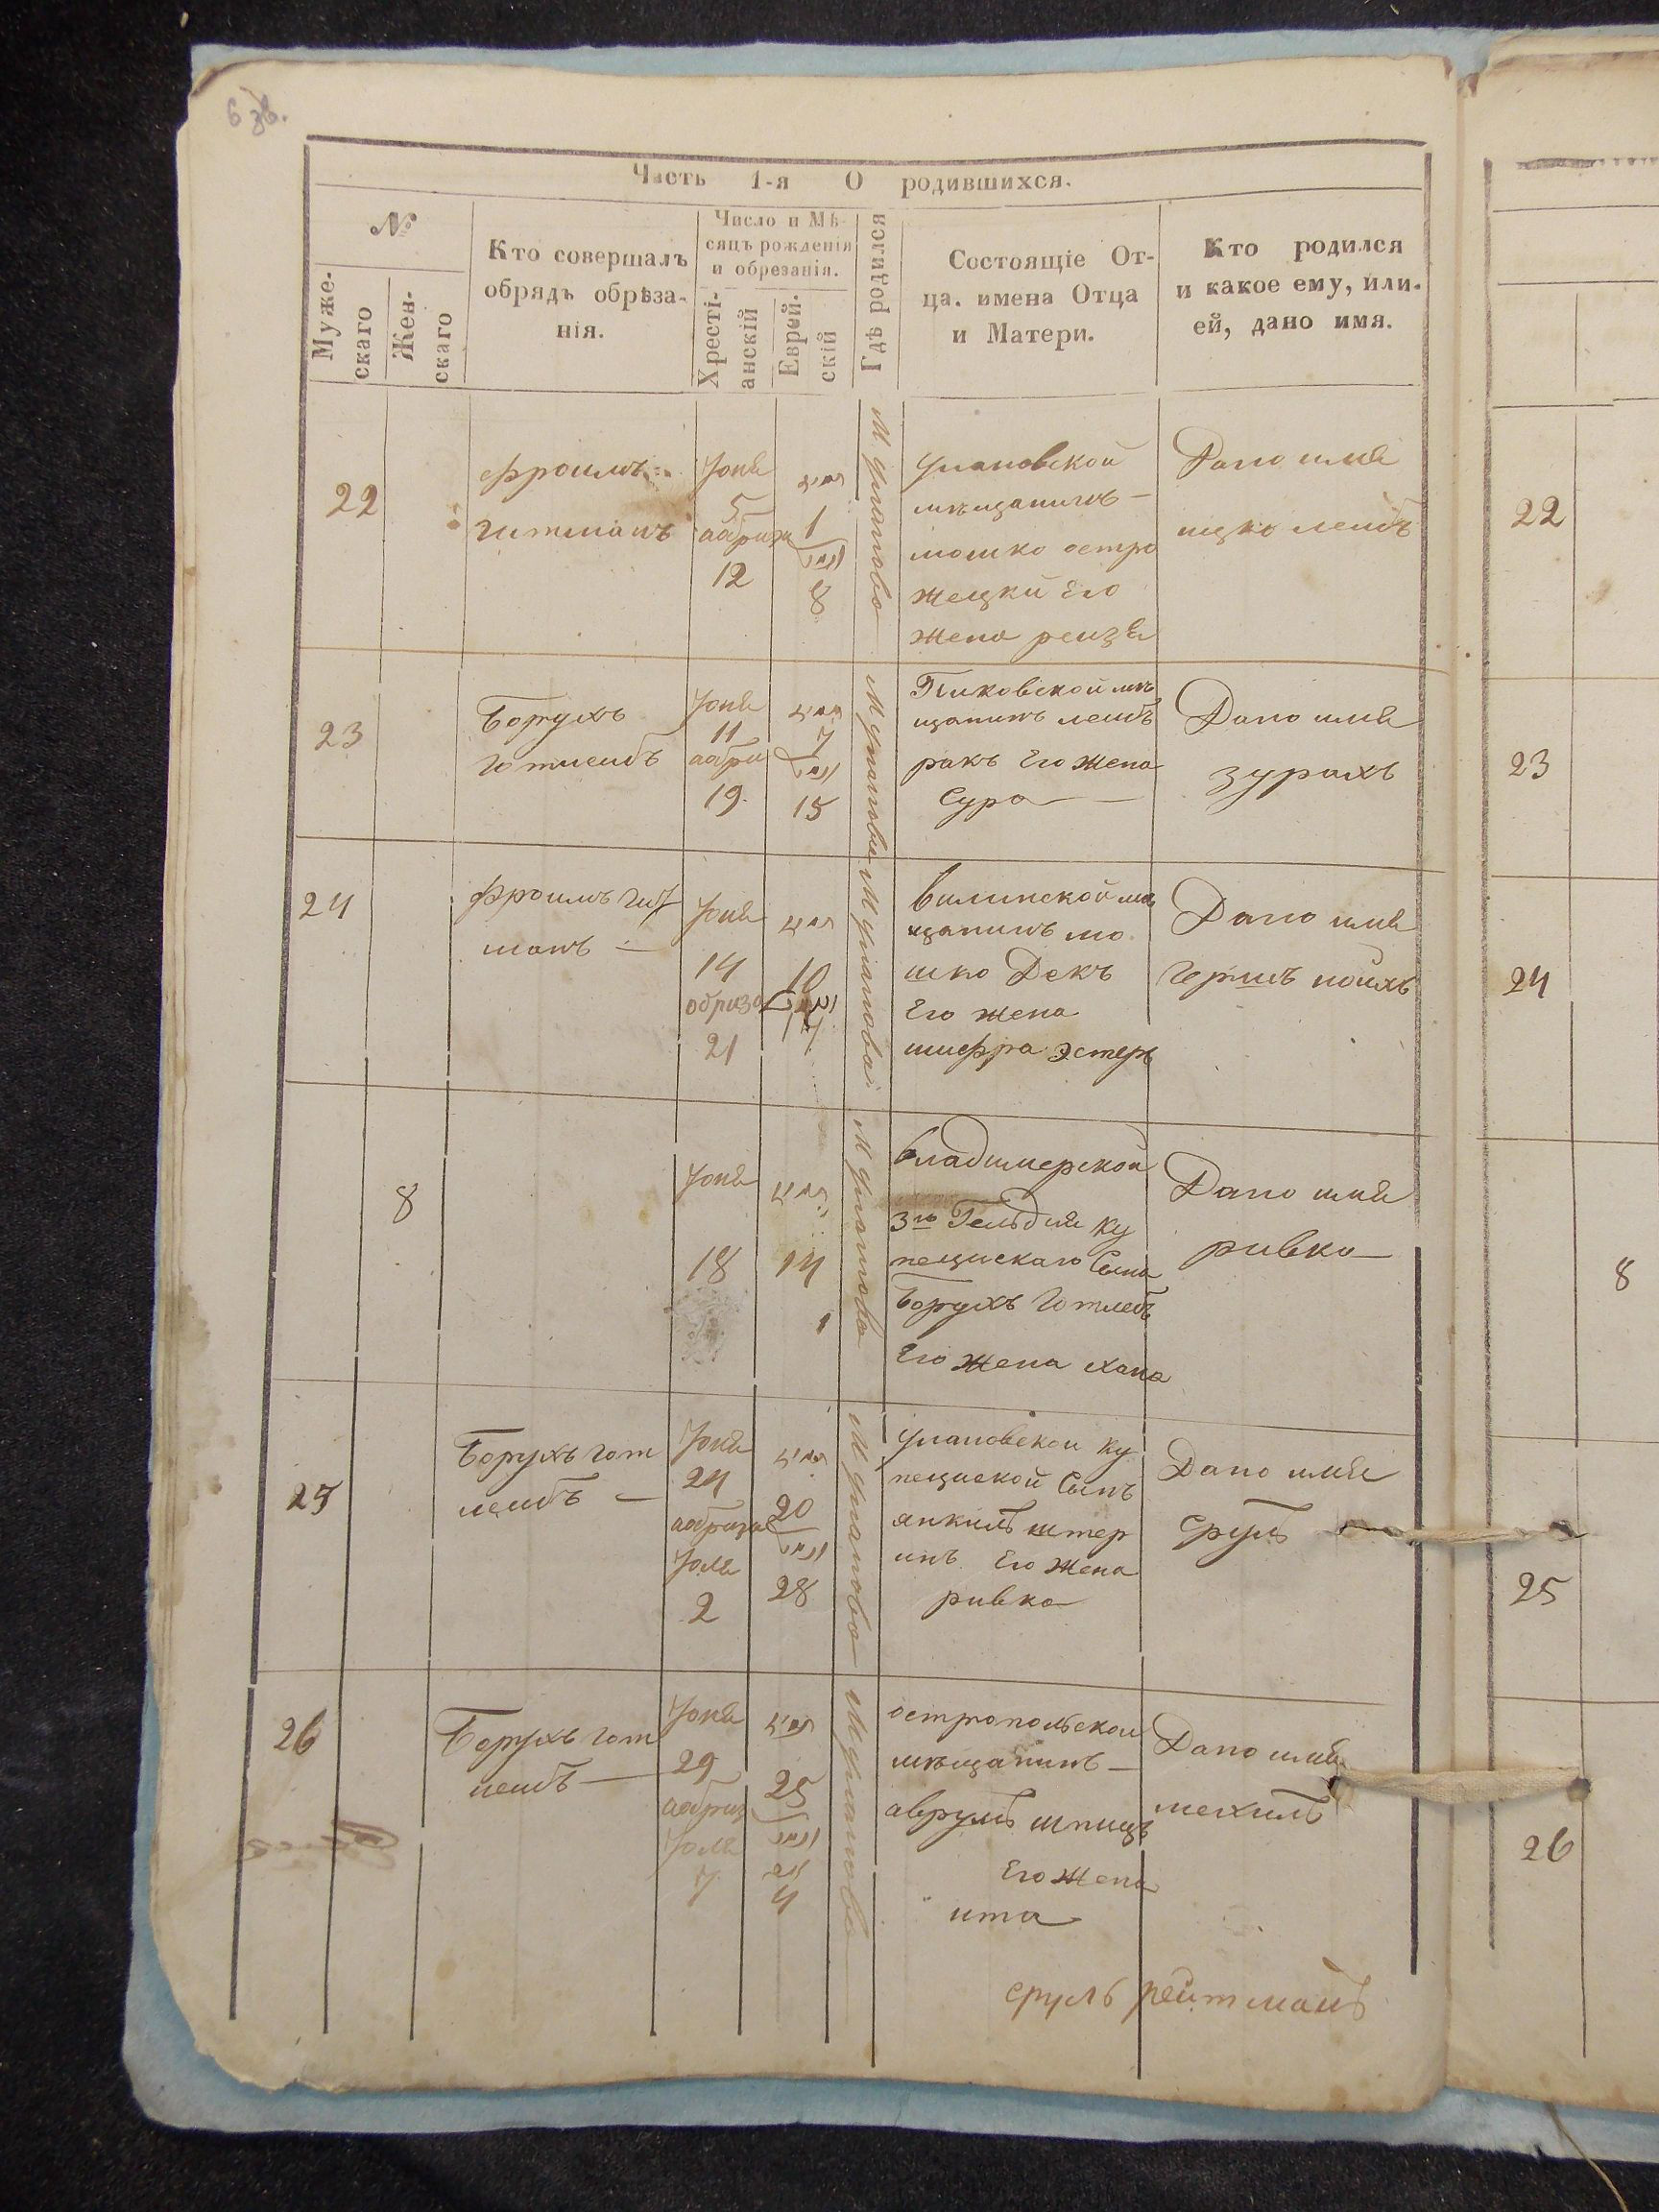 6 зв.
Часть 1-я О родившихся.
№
Муже-
скаго
Жен-
скаго
Кто совершалъ
обрядъ обрѣза-
нія.
Число и Мѣ-
сяцъ рожденія
и обрезанія.
Хресті-
анскій
Еврей-
скій
Гдѣ родился
Состоящіе От-
ца. имена Отца
и Матери.
Кто родился
и какое ему, или.
ей, дано имя.
22
фроимъ
гитманъ
Юня
5
12
1
8
М Уланово
Улановской
мѣщанинъ —
мошко остро
жецки Его
жена реизя
Дано имя
ицко леибъ
23
Борухъ
готлеибъ
Юня
11
19.
7
15
М Уланово
Пиковской мѣ
щанинъ леибъ
ракъ Его жена
Сура —
Дано имя
зурахъ
24
Фроимъ гит
манъ —
Юня
14
21
10
17
М Уланова
вилинской мѣ
щанинъ мо
шко Декъ
Его жена
шифра эстеръ
Дано имя
Гершъ
8
Юня
18
14
М Уланова
владимерской
3й Гельдия ку
Борухъ Готлебъ
Его жена хана
Дано имя
ривка
25
Борухъ гот
леибъ —
Юня
24
Юля
2
20
28
М Уланово
Улановской ку
пецкой Сынъ
янкиль штер
инъ Его жена
ривка
Дано имя
Сруль
26
Борухъ гот
леибъ —
Юня
29
Юля
7
25
4
М Уланово
остропольской
мѣщанинъ —
аврумъ шпицъ
Его жена
ита
Дано имя
мехиль
сруль рейтманъ
22
23
24
8
25
26